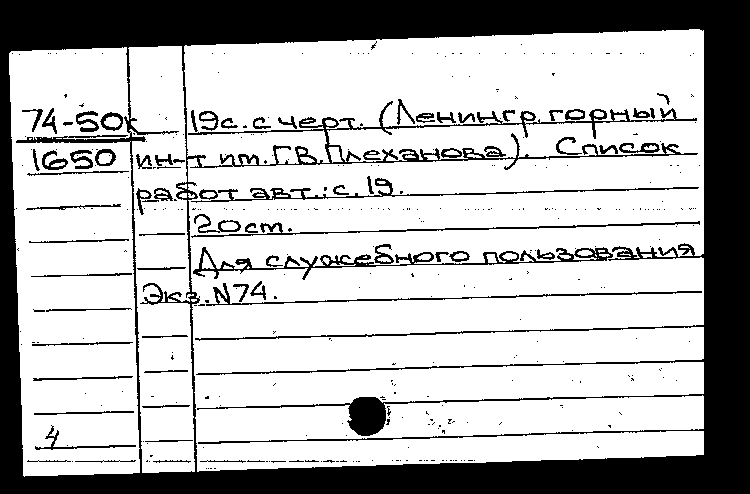 74-50к 19с. с черт. (Ленингр. горный
1650 ин-т им. Г.В. Плеханова). Список
работ авт.: с. 19.
20 cm.
Для служебного пользования.
Экз. N74.
4